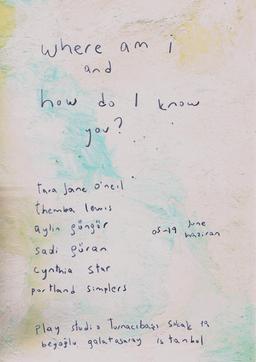 where am i
and
how do I know
you?
tara jane o'neil
themba lewis
aylin güngör
sadi güran
cynthia star
portland simplers
05-19 June
haziran
play studio Turnacıbaşı Sokak 19
beyoğlu galatasaray istanbul